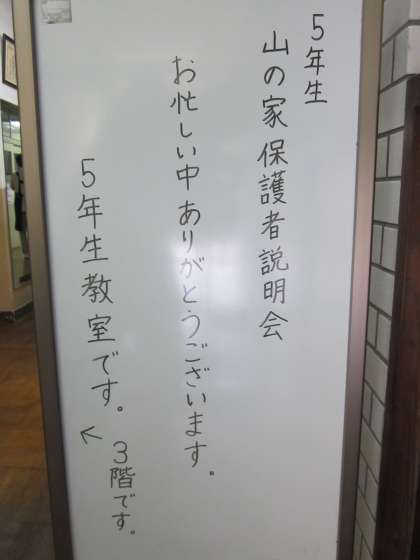 5年生
山の家保護者説明会
お忙しい中ありがとうございます。
5年生教室です。
← 3階です。